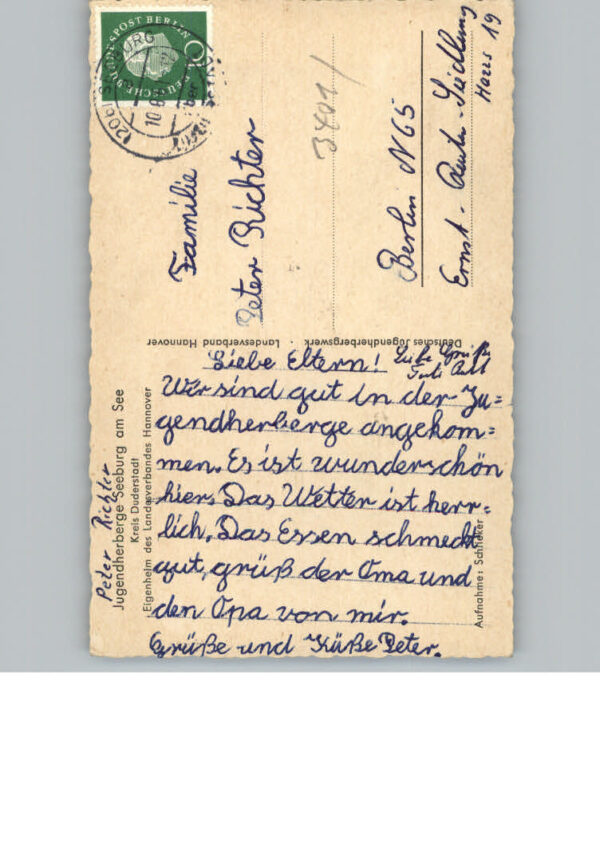 DEUTSCHE BUNDESPOST BERLIN
SEEBURG
10.8.
Familie
Peter Richter
3401/
Berlin N 65
Ernst-Reuter-Siedlung
Haus 19
Deutsches Jugendherbergswerk · Landesverband Hannover
Peter Richter
Jugendherberge Seeburg am See
Kreis Duderstadt
Eigenheim des Landesverbandes Hannover
Liebe Eltern!
Wir sind gut in der Ju=
gendherberge angekom=
men. Es ist wunderschön
hier. Das Wetter ist herr=
lich. Das Essen schmeckt
gut, grüß der Oma und
den Opa von mir.
Grüße und Küße Peter.
Aufnahme: Schricker